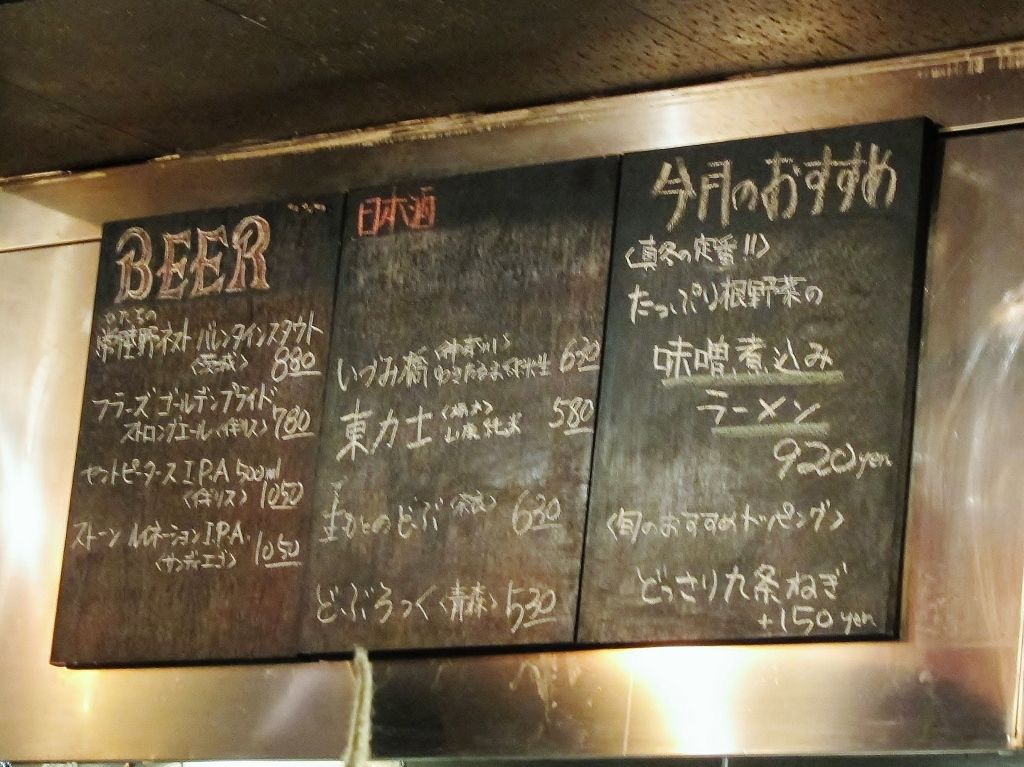 BEER
常陸野ネスト バレンタインスタウト
<茨城> 880
フラーズ ゴールデンプライド
ストロングエール<イギリス> 780
セントピータース I.P.A 500ml
<イギリス> 1050
ストーン ルイネーション I.P.A.
<サンディエゴ> 1050
日本酒
いづみ橋 <神奈川> 630
東力士 <栃木> 山廃 純米 580
生もとのどぶ <奈良> 630
どぶろっく <青森> 530
今月のおすすめ
<真冬の定番!!>
たっぷり根野菜の
味噌煮込み
ラーメン
920yen
<旬のおすすめトッピング>
どっさり九条ねぎ
+150 yen